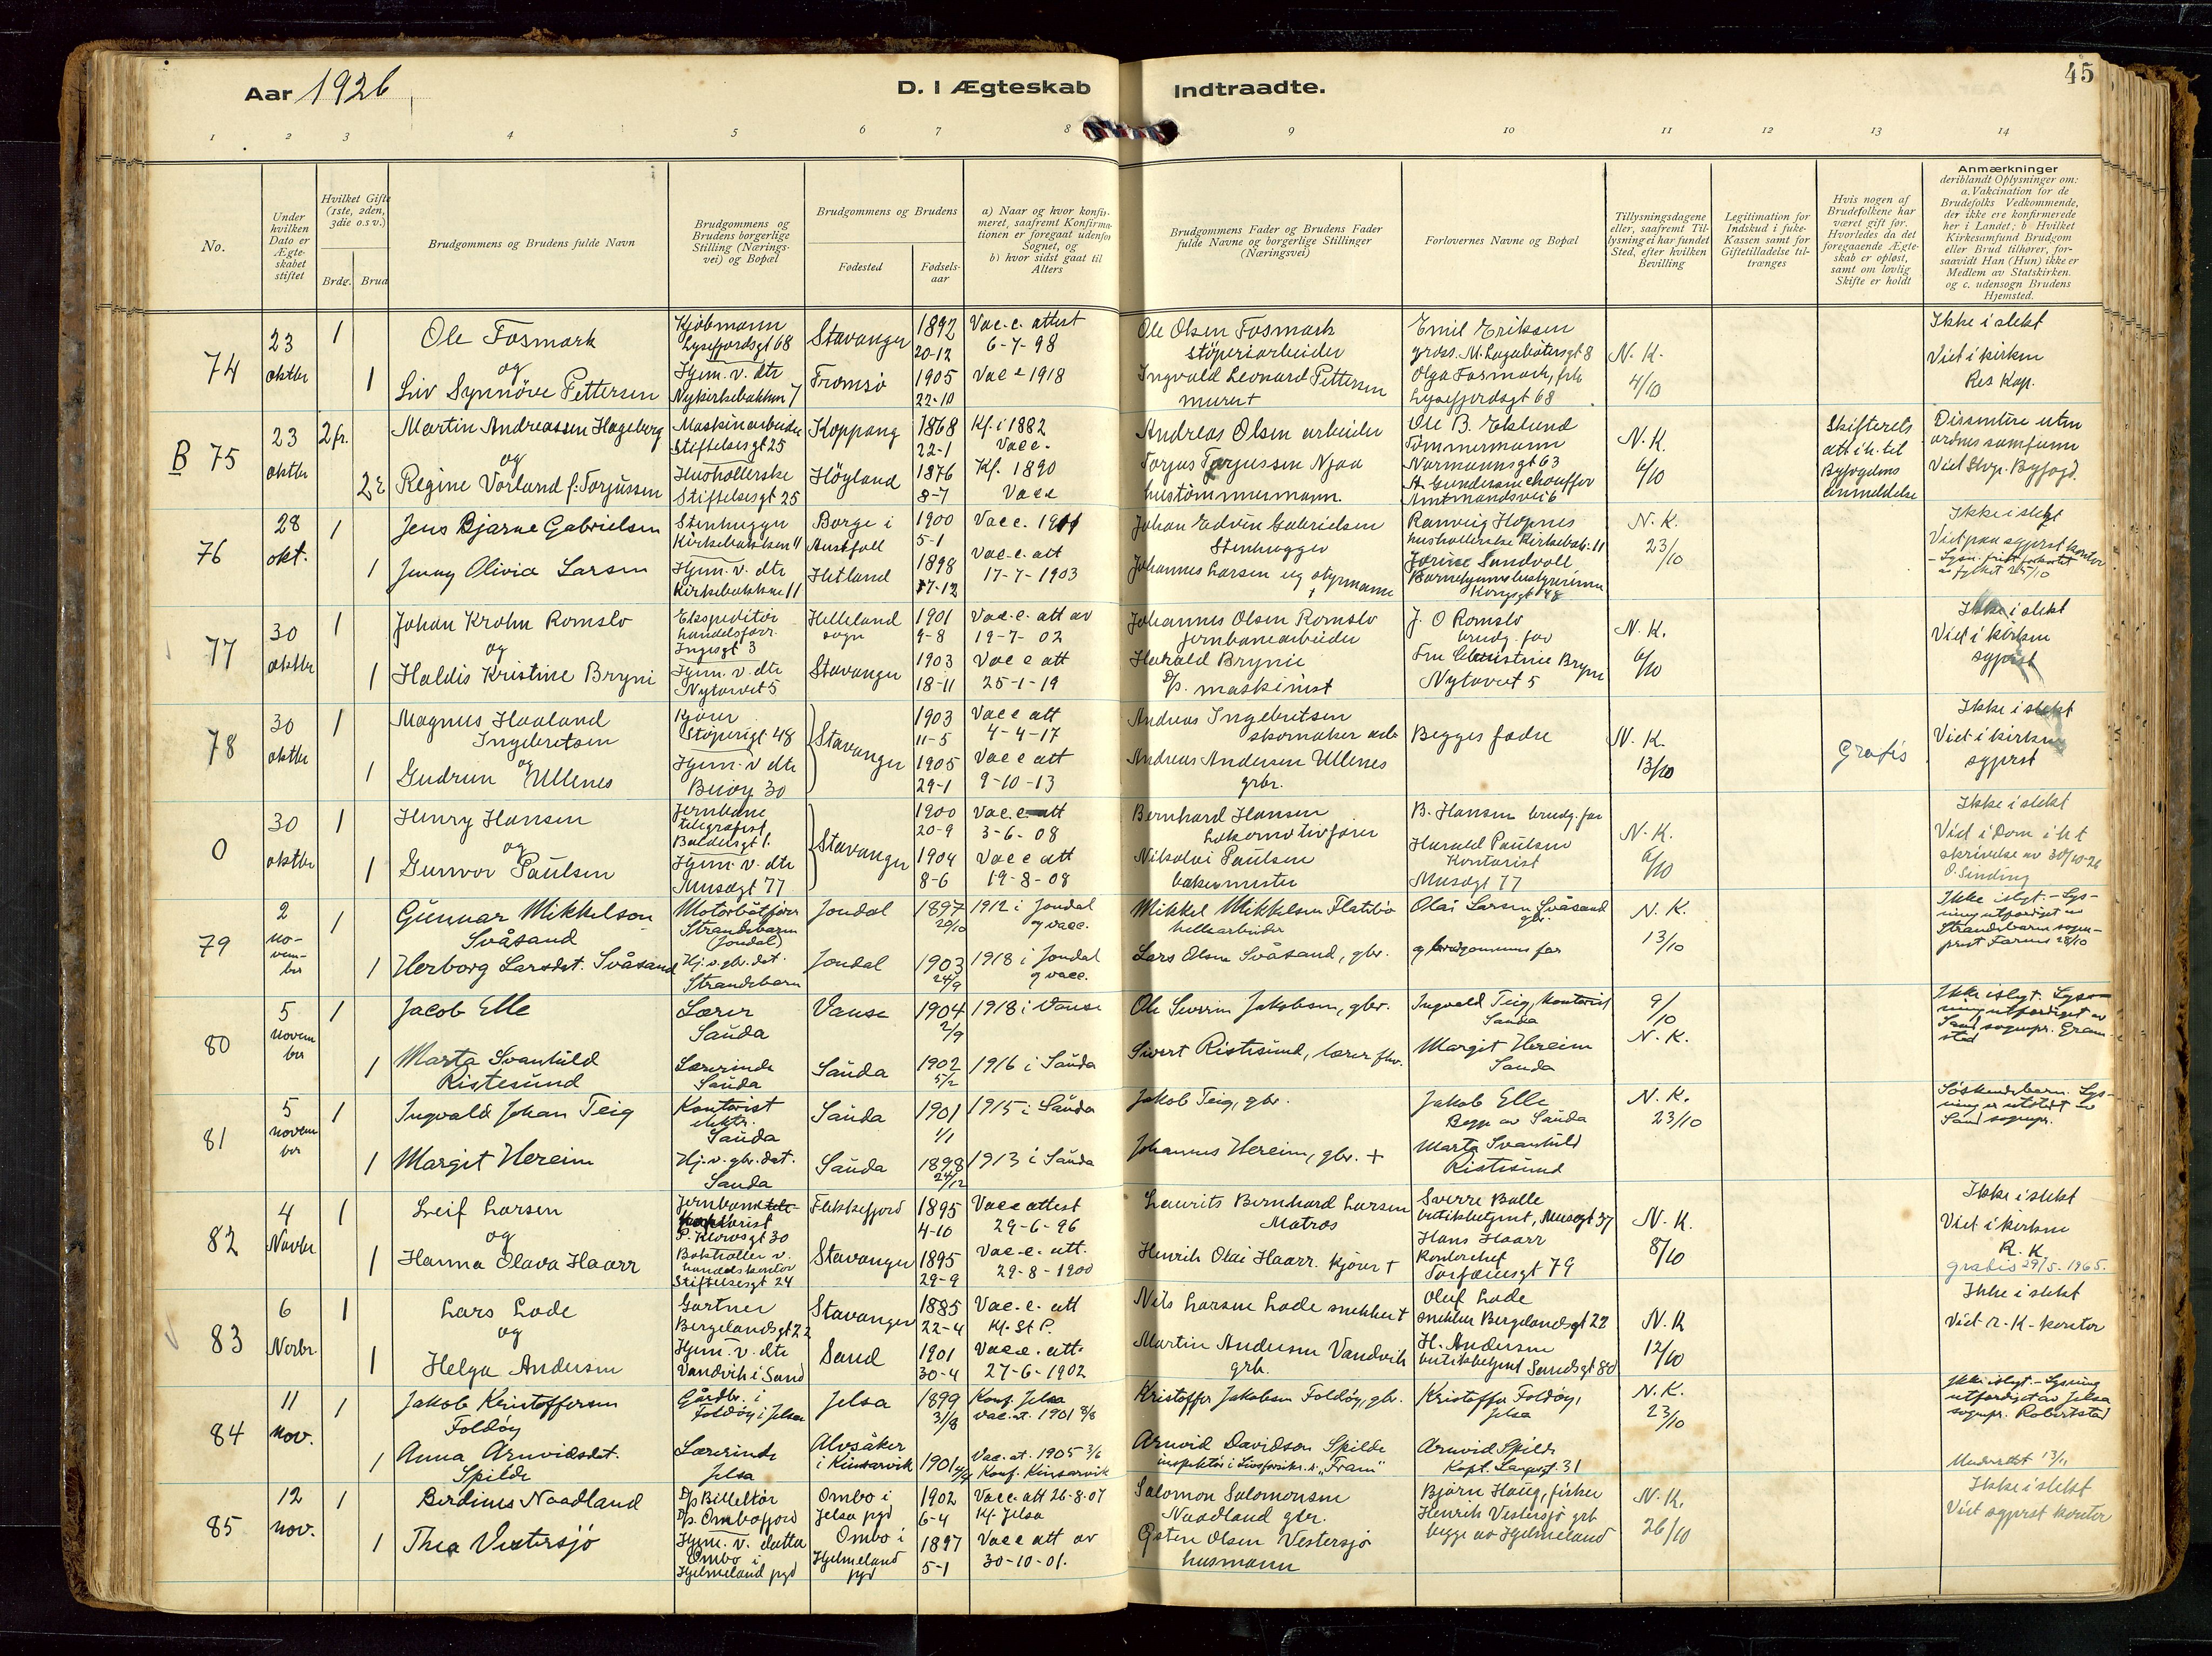 Aar 1926
D. I Ægteskab Indtraadte.
45
1 2 3 4 5 6 7 8 9 10 11 12 13 14
No.
Under hvilken Dato er Ægteskabet stiftet
Hvilket Gifte (1ste, 2den, 3die o.s.v.)
Brdg. Brud
Brudgommens og Brudens fulde Navn
Brudgommens og Brudens borgerlige Stilling (Næringsvei) og Bopæl
Brudgommens og Brudens
Fødested
Fødselsaar
a) Naar og hvor konfirmeret, saafremt Konfirmationen er foregaat udenfor Sognet, og
b) hvor sidst gaat til Alters
Brudgommens Fader og Brudens Fader fulde Navne og borgerlige Stillinger (Næringsvei)
Forlovernes Navne og Bopæl
Tillysningsdagene eller, saafremt Tillysning ei har fundet Sted, efter hvilken Bevilling
Legitimation for Indskud i fuke-Kassen samt for Giftetilladelse tiltrænges
Hvis nogen af Brudefolkene har været gift før. Hvorledes da det foregaaende Ægteskab er opløst, samt om lovlig Skifte er holdt
Anmærkninger
deriblandt Oplysninger om: a. Vakcination for de Brudefolks Vedkommende, der ikke ere konfirmerede her i Landet; b Hvilket Kirkesamfund Brudgom eller Brud tilhører, forsaavidt Han (Hun) ikke er Medlem av Statskirken. og c. udensogn Brudens Hjemsted.
74
23 oktbr
1
Ole Fosmark
og
1
Liv Synnöve Pettersen
Kjöbmann
Lysefjordsgt 68
Hjem. v. dtr
Nykirkebakken 7
Stavanger
Tromsö
1892
20-12
1905
22-10
Vac. e. attest
6-7-98
Vac e 1918
Ole Olsen Fosmark
stöperiarbeider
Ingvald Leonard Pettersen
murer †
Emil Eriksen
gross. M. Lagabötersgt 8
Olga Fosmark, frk
Lysefjordsgt 68
N. K.
4/10
Ikke i slekt
Viet i kirken
Res Kap.
B 75
23 oktbr
2 fr.
Martin Andreassen Hageberg
og
2
Regine Vorland f. Torjussen
Maskinarbeider
Stiftelsesgt 25
Husholderske
Stiftelsesgt 25
Koppang
Höyland
1868
22-1
1876
8-7
Kf. i 1882
Vacc.
Kf. 1890
Vacc
Andreas Olsen arbeider
Torjus Torjussen Njaa
hustömmermann.
Ole B. Eklund
Tömmermann
Normannsgt 63
A. Gundersen chouffør
Amtmandsvei 6
N. K.
6/10
Skifterets
att i h. til
Byfogdens
anmeldelse
Dissentere uten
ordnet samfunn
Viet Stvgr. Byfogd.
76
28 okt.
1
Jens Bjarne Gabrielsen
1
Jenny Olivia Larsen
Stenhugger
Kirkebakken 11
Hjem. v. dtr
Kirkebakken 11
Borge i
Austfoll
Hetland
1900
5-1
1898
17-12
Vac e. 1911
Vac. e. att
17-7-1903
Johan Edvin Gabrielsen
Stenhugger
Johannes Larsen ug styrmann †
Ranveig Hopnes
husholderske Kirkebak. 11
Jorine Sundvoll
Barnehjemsbestyrerinne
Kongsgt 48
N. K.
23/10
Ikke i slegt
Viet paa sgprst kontor
77
30 oktbr
1
Johan Krohn Romslo
og
1
Haldis Kristine Bryni
Ekspeditör
handelsforr.
Ingisgt 3
Hjem. v. dtr
Nytorvet 5
Helleland
sogn
Stavanger
1901
9-8
1903
18-11
Vac. e. att av
19-7-02
Vac e att
25-1-19
Johannes Olsen Romslo
jernbanearbeider
Harald Brynie
D/p. maskinist
J. O Romslo
brudg. far
Fru Christine Bryni
Nytorvet 5
N. K.
6/10
Ikke i slekt
Viet i kirken
sgprst
78
30 oktbr
1
Magnus Haaland
Ingebretsen
og
1
Gudrun Ullenes
Kjörer
Stöperigt 48
Hjem. v dtr
Buöy 30
Stavanger
1903
11-5
1905
29-1
Vac e att
4-4-17
Vac e att
9-10-13
Andreas Ingebretsen
skomaker arb
Andreas Andersen Ullenes
grbr.
Begges fedre
N. K.
13/10
Gratis
Ikke i slekt
Viet i kirken
sgprst
0
30 oktbr
1
Henry Hansen
og
1
Gunvor Paulsen
Jernbane
telegrafist
Baldersgt 1.
Hjem. v. dtr
Musegt 77
Stavanger
1900
20-9
1904
8-6
Vac. e att
3-6-08
Vac e att
19-8-08
Bernhard Hansen
Lokomotivförer
Nikolai Paulsen
bakermester
B. Hansen brudg. far
Harald Paulsen
Kontorist
Musegt 77
N. K.
6/10
Ikke i slekt
Viet i Dom. i h t
skrivelse av 30/10-26
O. Sending
79
2 november
1
Gunnar Mikkelson
Svåsand
1
Herborg Larsdat. Svåsand
Motorbåtförer
Strandebarm
(Jondal)
Hj. v. gbr. dat.
Strandebarm
Jondal
Jondal
1897
20/10
1903
24/9
1912 i Jondal
og vacc.
1918 i Jondal
og vacc.
Mikkel Mikkelsen Flatebö
hellearbeider
Lars Olsen Svåsand, gbr.
Olai Larsen Svåsand
gbr.
og brudgommens far
N. K.
13/10
Ikke slegt. - Lysning utferdiget av Strandebarm sogneprest Farnes 28/10
80
5 november
1
Jacob Elle
1
Marta Svanhild
Ristesund
Lærer
Sauda
Lærerinde
Sauda
Vanse
Sauda
1904
2/9
1902
5/2
1918 i Vanse
1916 i Sauda
Ole Severin Jakobsen, gbr.
Sivert Ristesund, lærer fhv.
Ingvald Teig, kontorist
Sauda
Margit Hereim
Sauda
9/10
N. K.
Ikke i slegt. Lysning utferdiget av Sand sognepr. Gramstad
81
5 november
1
Ingvald Johan Teig
1
Margit Hereim
Kontorist
elektr.
Sauda
Hj. v. gbr. dat.
Sauda
Sauda
Sauda
1901
1/1
1898
24/12
1915 i Sauda
1913 i Sauda
Jakob Teig, gbr.
Johannes Hereim, gbr. +
Jakob Elle
Begge av Sauda
Marta Svanhild
Ristesund
N. K.
23/10
Söskendebarn. Lysning er utstedt av Sand sognepr.
82
4 Novbr
1
Leif Larsen
og
1
Hanna Olava Haarr
P. Klowsgt 30
Bokholder v.
handelskontor
Stiftelsesgt 24
Flekkefjord
Stavanger
1895
4-10
1895
29-9
Vac e attest
29-6-96
Vac. e. att.
29-8-1900
Laurits Bernhard Larsen
Matros
Henrik Olai Haarr. kjörer †
Sverre Balle
butikkbetjent, Musegt 37
Hans Haarr
Kontorchef
Torfæusgt 79
N. K.
8/10
Ikke i slekt
Viet i kirken
R. K.
gratis 29/5-1965.
83
6 Novbr.
1
Lars Lode
og
1
Helga Andersen
Gartner
Bergelandsgt 22
Hjem. v. dtr
Vandvik i Sand
Stavanger
Sand
1885
22-4
1901
30-4
Vac. e. att
Kf. St P.
Vac e. att.
27-6-1902
Nils Larsen Lode snekker †
Martin Andersen Vandvik
grb.
Oluf Lode
snekker Bergelandsgt 22
H. Andersen
butikkbetjent Sandsgt 80
N. K
12/10
Ikke i slekt
Viet R-K-kontor
84
11 nov.
1
Jakob Kristoffersen
Foldöy
1
Anna Arnvidsdat.
Spilde
Gårdbr. i
Foldöy i Jelsa
Lærerinde
Jelsa
Jelsa
Alvsåker
i Kinsarvik
1899
31/8
1901 4/4
Konf. Jelsa
vac. at. 1901 8/8
Vac. at. 1905 3/6
Konf. Kinsarvik
Kristoffer Jakobsen Foldöy, gbr.
Arnvid Davidson Spilde
inspektör i Livsforsikr. s. "Fram"
Kristoffer Foldöy,
Jelsa
Arnvid Spilde
Kapt. Langesgt. 31
N. K.
23/10
Ikke slegt. - Lysning utferdiget av Jelsa sognepr. Robertstad
85
12 nov.
1
Berdines Naadland
1
Thea Vestersjö
D/p Billettör
D/p. Ombofjord
Hjem. v. datter
Ombo i
Hjelmeland pgd
Ombo i
Jelsa pgd
Ombo i
Hjelmeland
pgd
1902
6-4
1897
5-1
Vac e. att 26-8-07
Kf. Jelsa
Vac e att av
30-10-01.
Salomon Salomonsen
Naadland gbr.
Østen Olsen Vestersjö
husmann
Bjarn Haug, fisker
Henrik Vestersjö grb
begge av Hjelmeland
N. K.
26/10
Ikke i slekt
Viet sgprst kontor